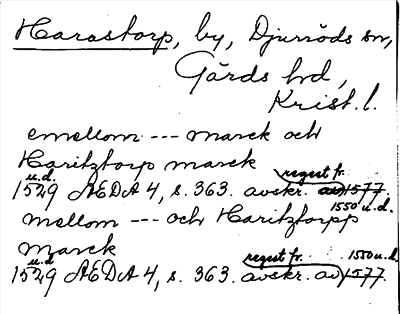 Harastorp, by, Djurröds sn,
Gärds hd,
Krist. l.
emellom --- marck och
Haritztorp marck
u.d. regest fr.
1529 ÆDA 4, s. 363. avskr. av 1577.
1550 u.d.
mellom --- och Haritztorpp
marck
u.d. regest fr. 1550 u.d.
1529 ÆDA 4, s. 363. avskr. av 1577.